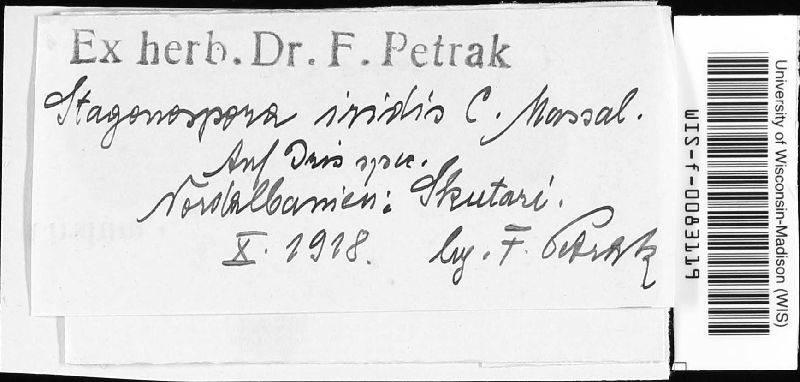 Ex herb. Dr. F. Petrak
Stagonospora iridis C. Massal.
Auf Iris spec.
Nordalbanien: Skutari.
X. 1918. leg. F. Petrak
WIS-f-0083119
University of Wisconsin-Madison (WIS)